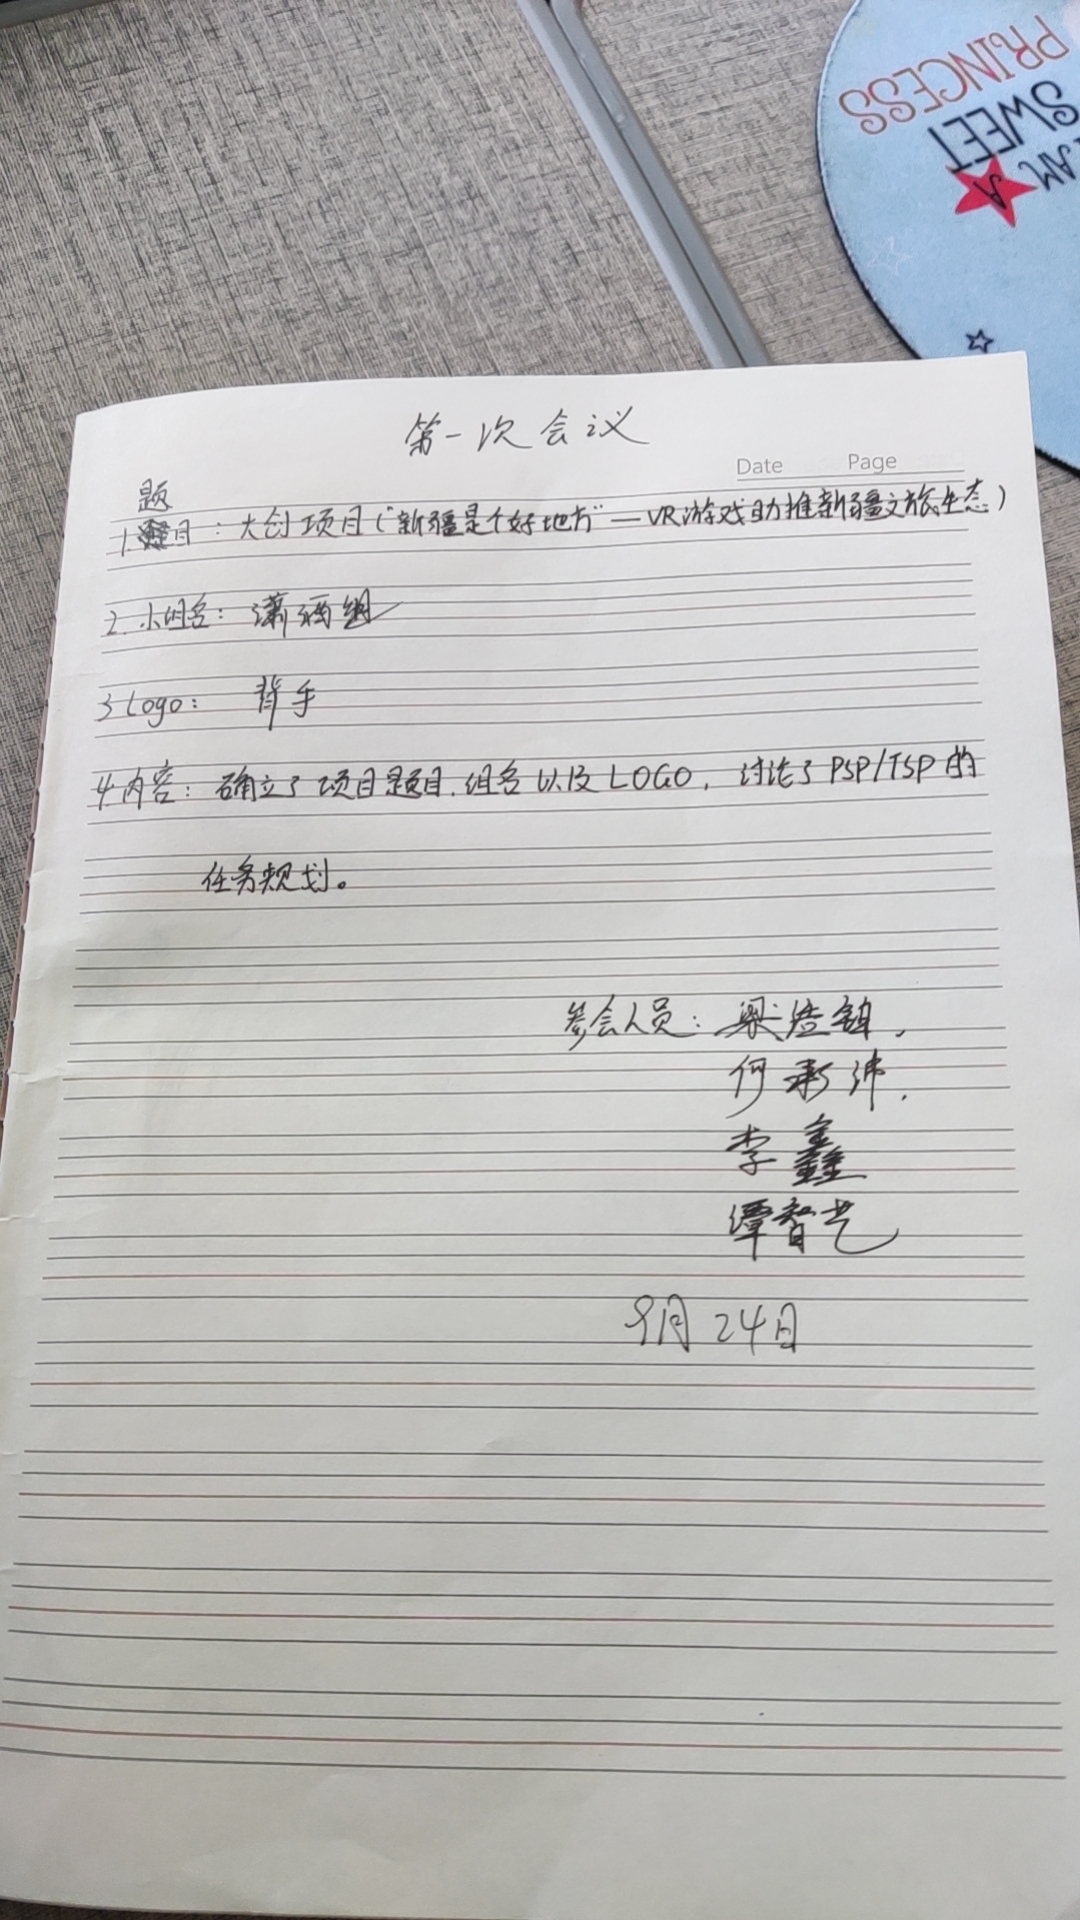 I AM A
SWEET
PRINCESS
第一次会议
Date Page
题
1. 目：大创项目（“新疆是个好地方”—VR游戏助推新疆文旅生态）
2. 小组名：潇洒组
3 Logo： 背手
4.内容：确立了项目题目.组名以及LOGO，讨论了PSP/TSP的
任务规划。
参会人员：梁
何承沛.
李鑫
谭智艺
9月24日